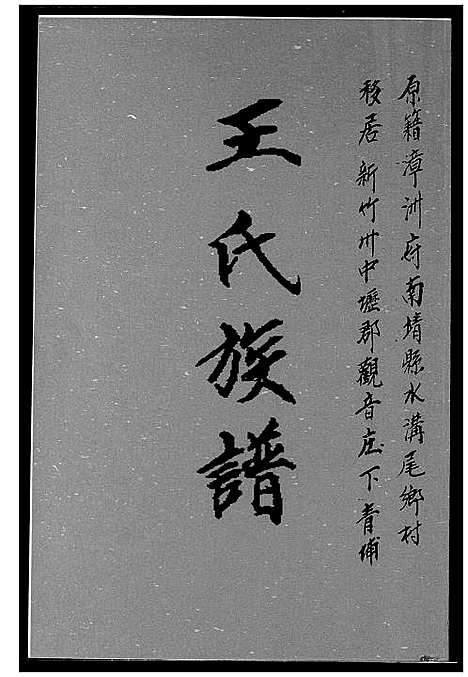 原籍漳洲府南靖縣水溝尾鄉村
移居新竹州中壢郡觀音庄下青埔
王氏族譜